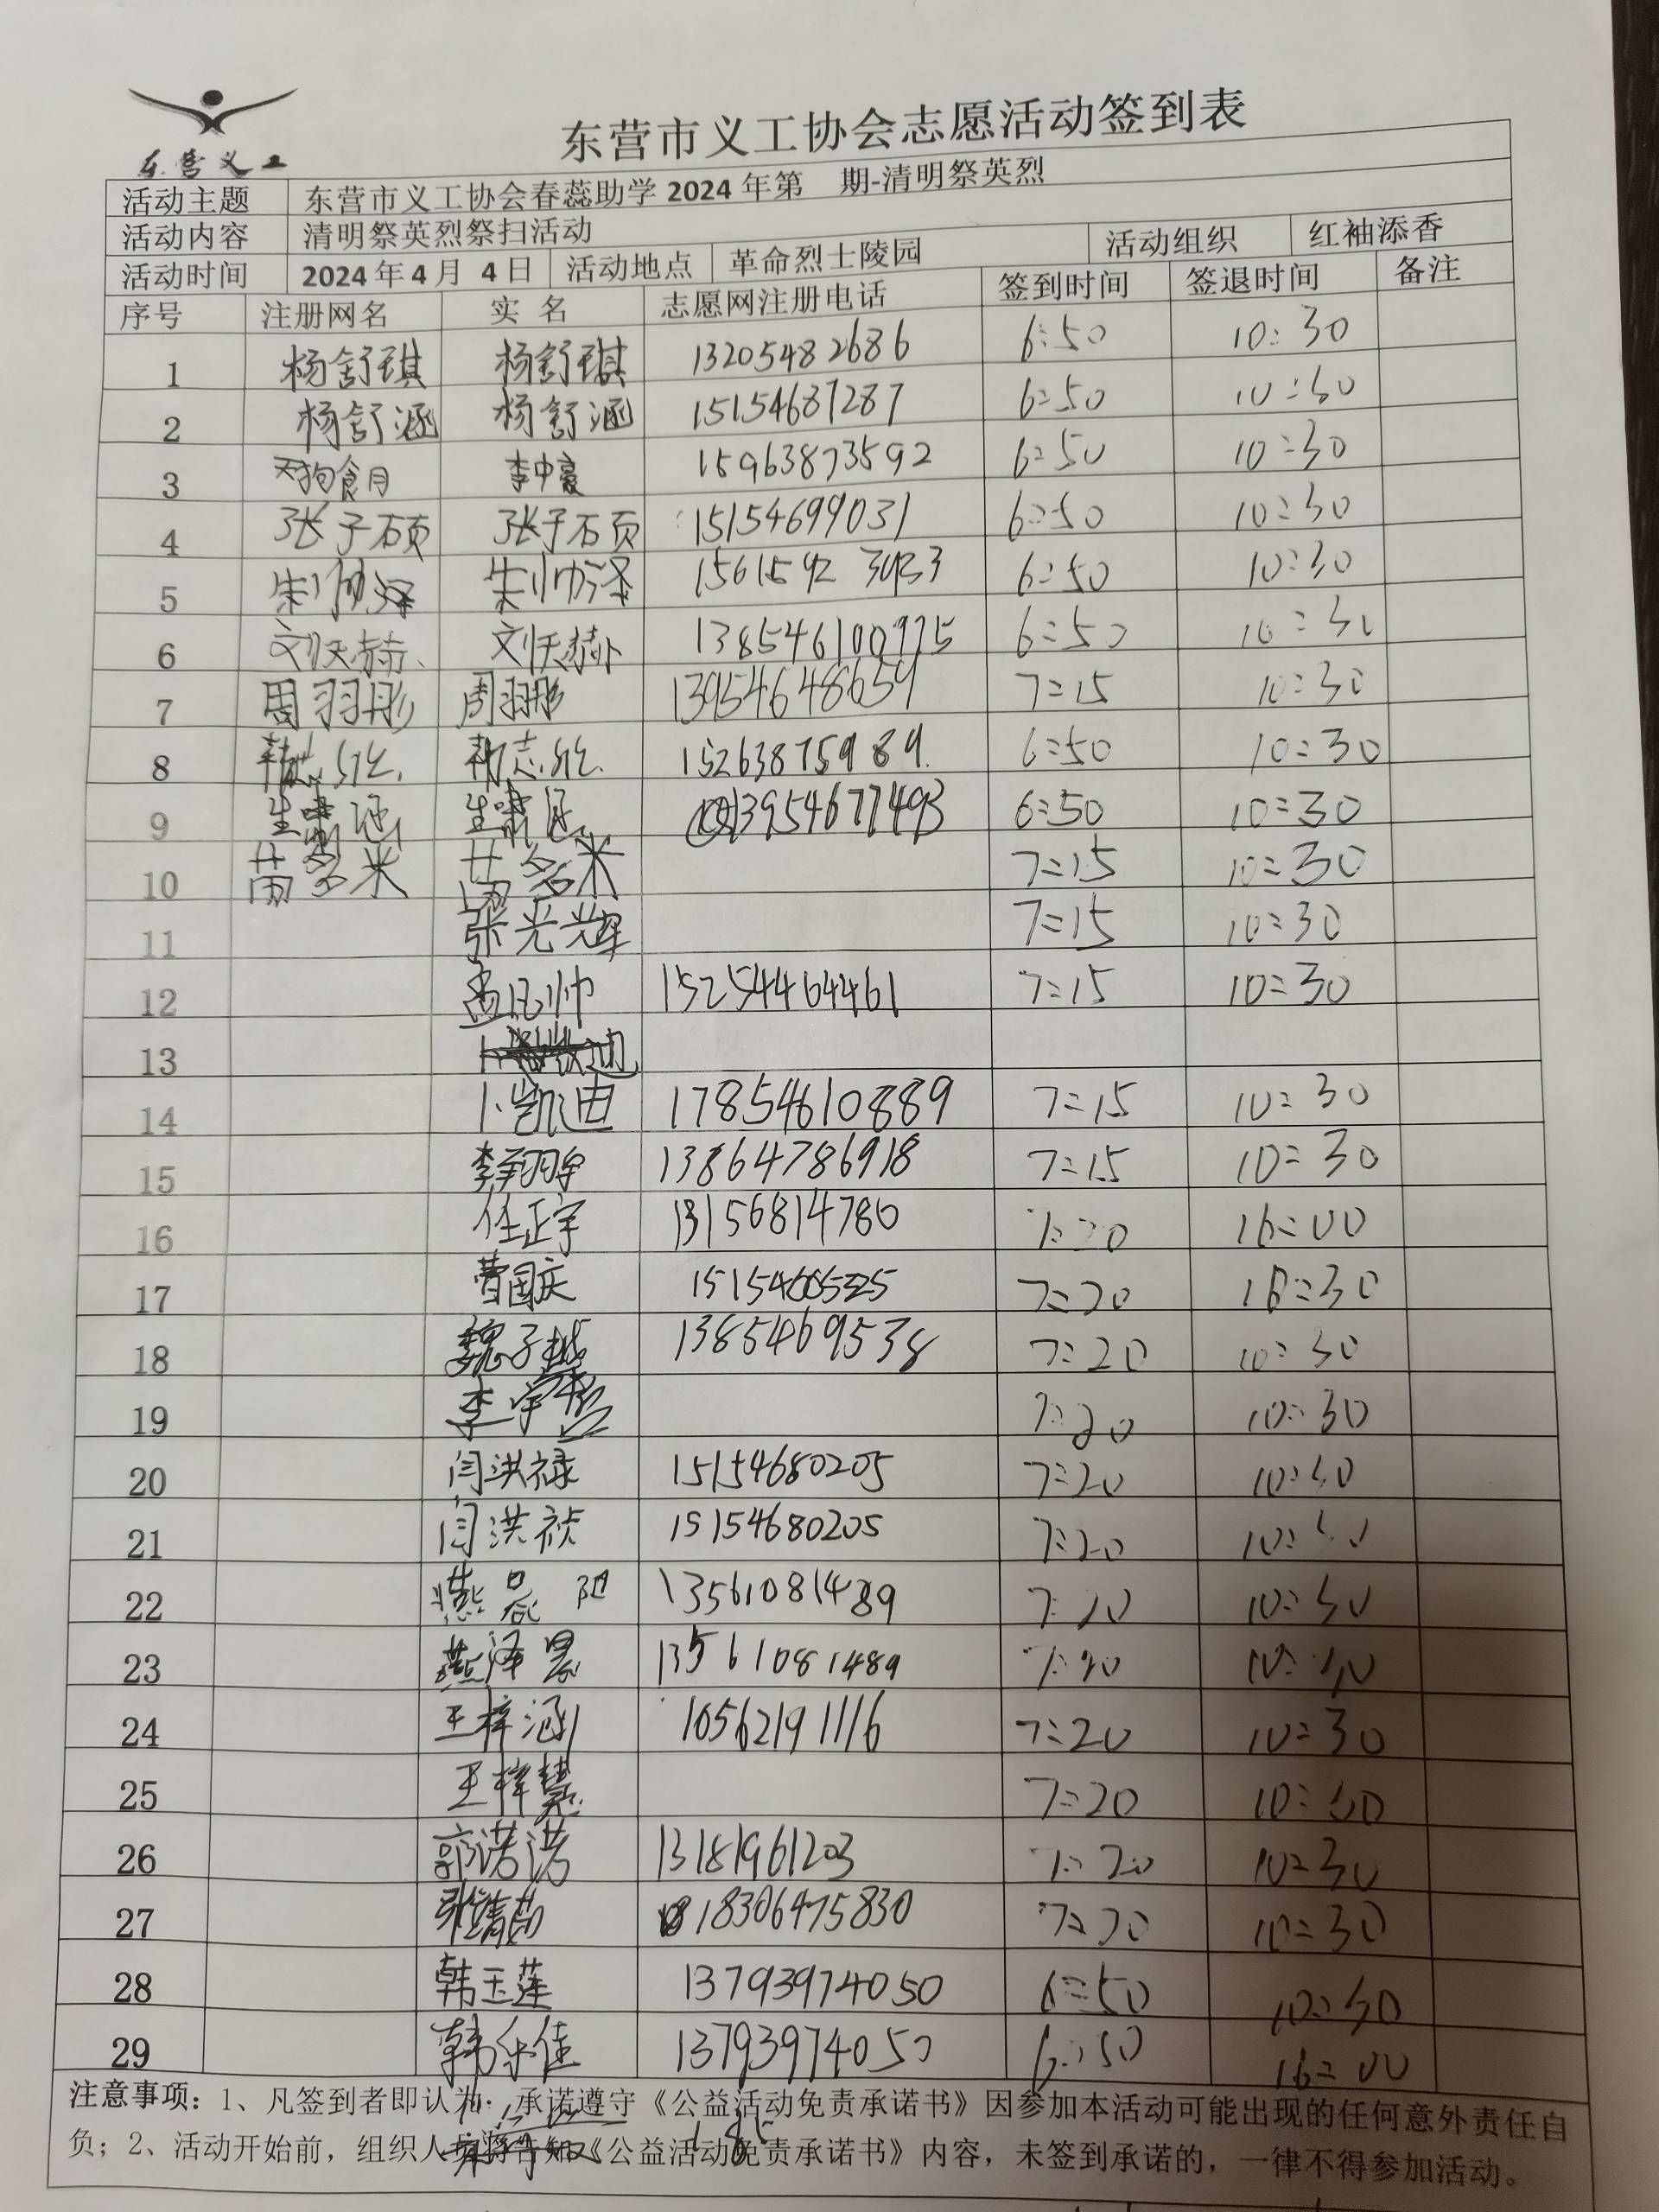 东营义工
东营市义工协会志愿活动签到表
活动主题 东营市义工协会春蕊助学 2024 年第 期-清明祭英烈
活动内容 清明祭英烈祭扫活动 活动组织 红袖添香
活动时间 2024 年 4 月 4 日 活动地点 革命烈士陵园
序号 注册网名 实 名 志愿网注册电话 签到时间 签退时间 备注
1 杨舒琪 杨舒琪 13205482686 6:50 10:30
2 杨舒涵 杨舒涵 15154687287 6:50 10:30
3 天狗食月 李中豪 15963873592 6:50 10:30
4 张子硕 张子硕 15154699031 6:50 10:30
5 朱帅泽 朱帅泽 6:50 10:30
6 刘天赫 刘天赫 138546100975 6:50 10:30
7 周羽彤 周羽彤 13954648659 7:15 10:30
8 15263875989 6:50 10:30
9 13954677493 6:50 10:30
10 苗多米 苗多米 7:15 10:30
11 张光辉 7:15 10:30
12 孟凡帅 15254464461 7:15 10:30
13
14 卜凯迪 17854610889 7:15 10:30
15 李翔宇 13864786918 7:15 10:30
16 任正宇 13156814780 7:20 16:00
17 曹国庆 7:20 30
18 魏子越 1385469538 7:20 10:30
19 李宇 7:20 10:30
20 闫洪禄 15154680205 7:20 10:30
21 闫洪祯 15154680205 7:20 10:30
22 燕 阳 13561081489 7:20 10:30
23 燕泽昊 13561081489 7:20 10:30
24 王梓涵 10562191116 7:20 10:30
25 王梓慧 7:20 10:30
26 郭诺诺 13181961203 7:20 10:30
27 张靖茹 18306475830 7:20 10:30
28 韩玉莲 13793974050 6:50 10:30
29 韩乐佳 13793974050 6:50 16:00
注意事项：1、凡签到者即认为：承诺遵守《公益活动免责承诺书》因参加本活动可能出现的任何意外责任自
负；2、活动开始前，组织人员将告知《公益活动免责承诺书》内容，未签到承诺的，一律不得参加活动。